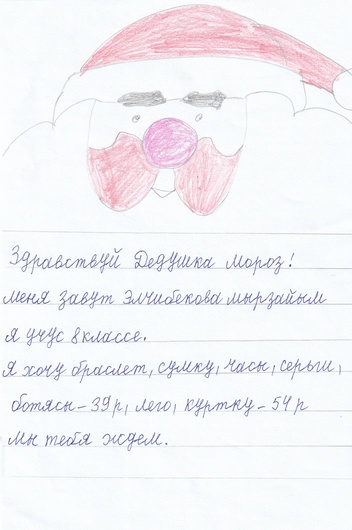 Здравствуй Дедушка мороз!
меня завут Элчибекова мырзайым
я учус 8классе.
я хочу браслет, сумку, часы, серьги,
ботясы-39р, лего, куртку-54р
мы тебя ждем.